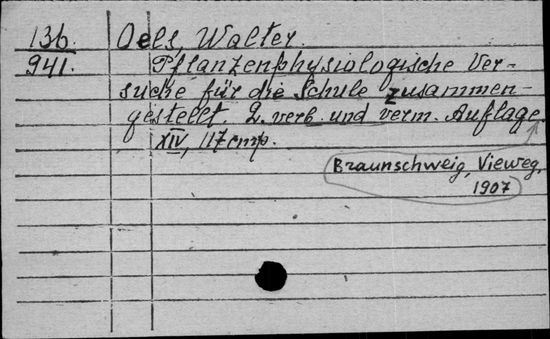 136. Oels, Walter.
941. Pflanzenphysiologische Ver-
suche für die Schule zusammen-
gestellt. 2. verb. und verm. Auflage.
XIV, 117 cmp.
Braunschweig, Vieweg,
1907